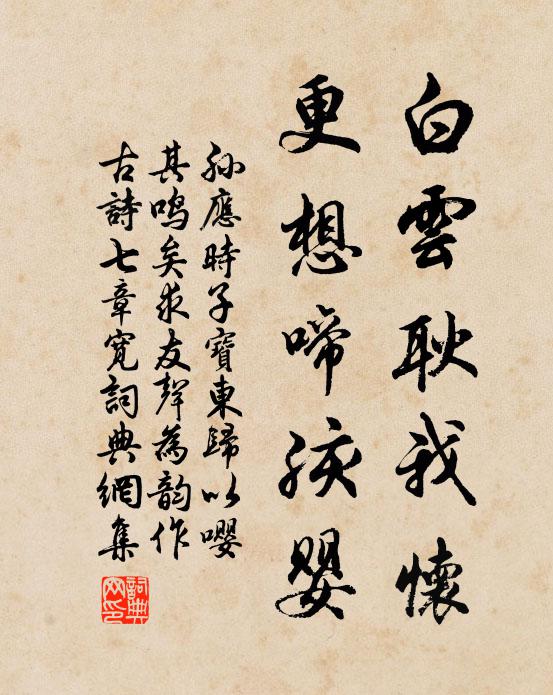 白雲耿我懷
更想啼孩嬰
孫應時子寶東歸以嚶
其鳴矣求友聲為韵作
古詩七章寬詞典網集
詞典网印